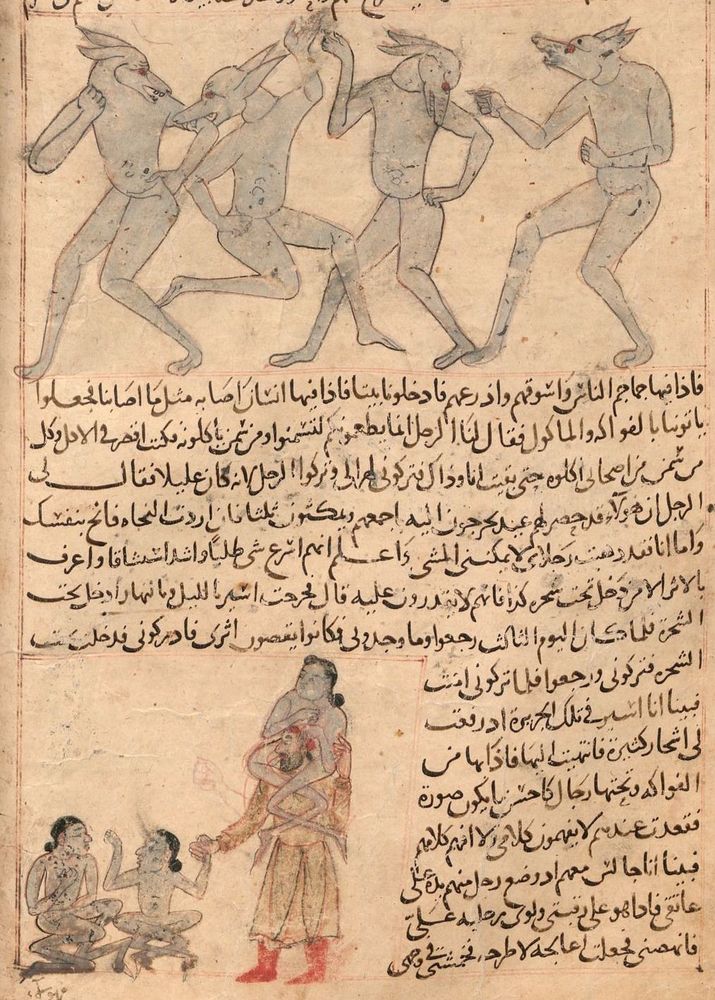 فاذا فيها جماجم الناس واسوقهم واذرعهم فادخلونا بيتا فاذا فيها انسان اصابه مثل ما اصابنا فجعلوا
ياتونا بالفواكه والماكول فقال لنا الرجل انما يطعمونكم لتسمنوا ومن سمن ياكلونه فكنت اقصر في الاكل وكل
من سمن من اصحابي اكلوه حتى بقيت انا وذاك فتركوني لهزالي وتركوا الرجل لانه كان عليلا فقال لي
الرجل ان هولاء قد حضر لهم عيد يخرجون اليه اجمعهم ويمكثون ثلثا فان اردت النجاه فانج بنفسك
واما انا فقد ذهبت رجلاي لا يمكنني المشي واعلم انهم اسرع شي طلبا واشد اشتياقا واعرف
بالاثر الا من دخل تحت شجره كذا فانهم لا يقدرون عليه قال فخرجت اسير بالليل وبالنهار ادخل تحت
الشجرة فلما كان اليوم الثالث رجعوا وما وجدوني فكانوا يقصون اثري فادركوني قد دخلت تحت
الشجره فتركوني ورجعوا فلما تركوني امنت
فبينا انا اسير في تلك الجزيرة اذ رفعت
لي اشجار كثيرة فانتهيت اليها فاذا بها من
الفواكه وتحتها رجال كاحسن ما يكون صورة
فقعدت عندهم لا يفهمون كلامي ولا افهم كلامهم
فبينا انا جالس معهم اذ وضع رجل منهم يده على
عاتقي فاذا هو على رقبتي ولوى برجليه علي
فانهضني فجعلت اعالجه لاطرحه فخمشني في وجهي